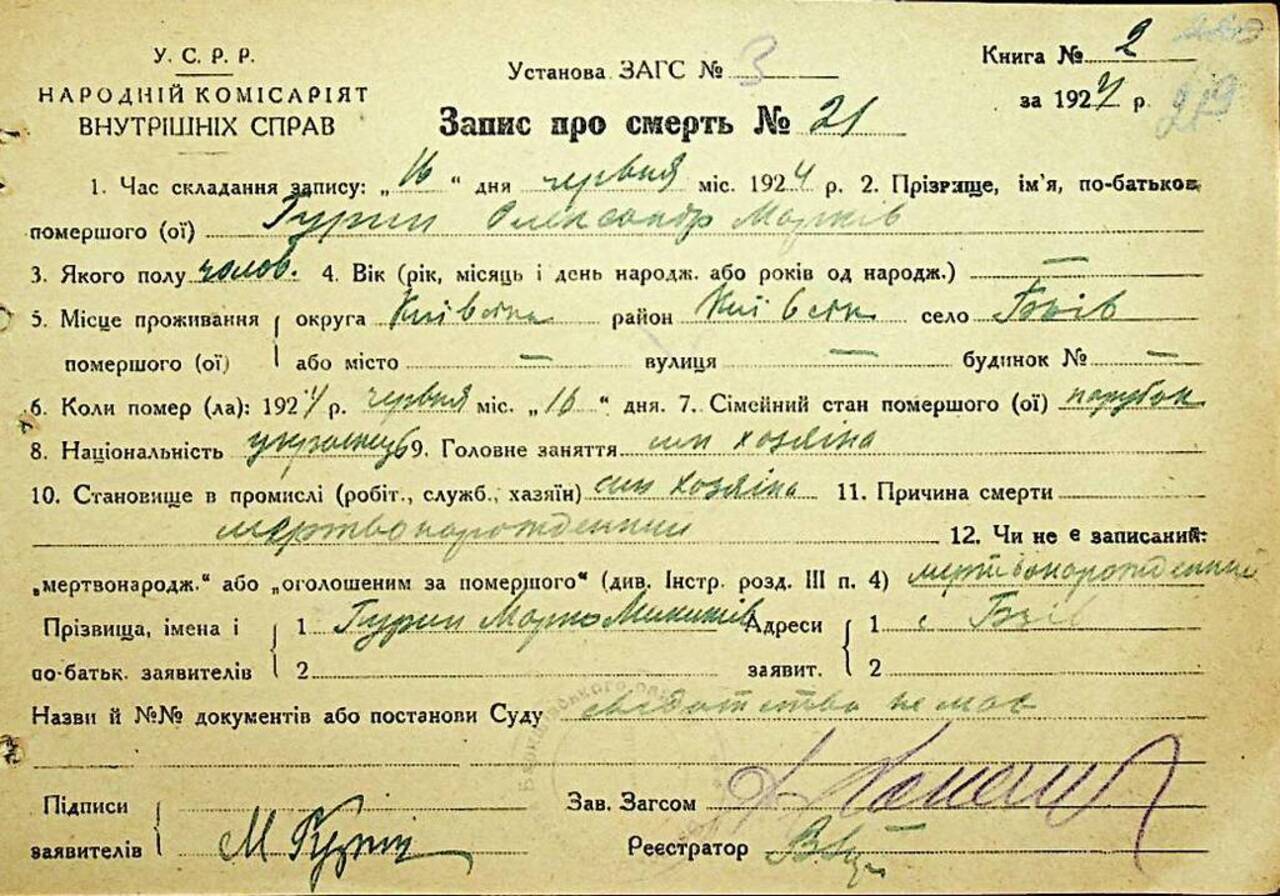 У. С. Р. Р.
НАРОДНІЙ КОМІСАРІЯТ
ВНУТРІШНІХ СПРАВ
Установа ЗАГС № 3
Книга № 2
за 1924 р.
Запис про смерть № 21
1. Час складання запису: „16“ дня червня міс. 1924 р. 2. Прізвище, ім'я, по-батькові
померлого (ої) Гурин Олександр Марків
3. Якого полу чолов. 4. Вік (рік, місяць і день народж. або років од народж.) —
5. Місце проживання округа Київська район Київськ село
помершого (ої) або місто — вулиця — будинок № —
6. Коли помер (ла): 1924 р. червня міс. „16“ дня. 7. Сімейний стан помершого (ої) парубок
8. Національність українець 9. Головне заняття син хозяіна
10. Становище в промислі (робіт., служб., хазяїн) син хозяіна 11. Причина смерти
мертвонарожденний
12. Чи не є записаний:
„мертвонародж.“ або „оголошеним за помершого“ (див. Інстр. розд. III п. 4) мертвонарожденний
Прізвища, імена і 1 Гурин Марко Микитів Адреси 1 с.
по-батьк. заявителів 2 заявит. 2
Назви й №№ документів або постанови Суду свідотства немає
Підписи
заявителів М Гурин
Зав. Загсом
Реєстратор